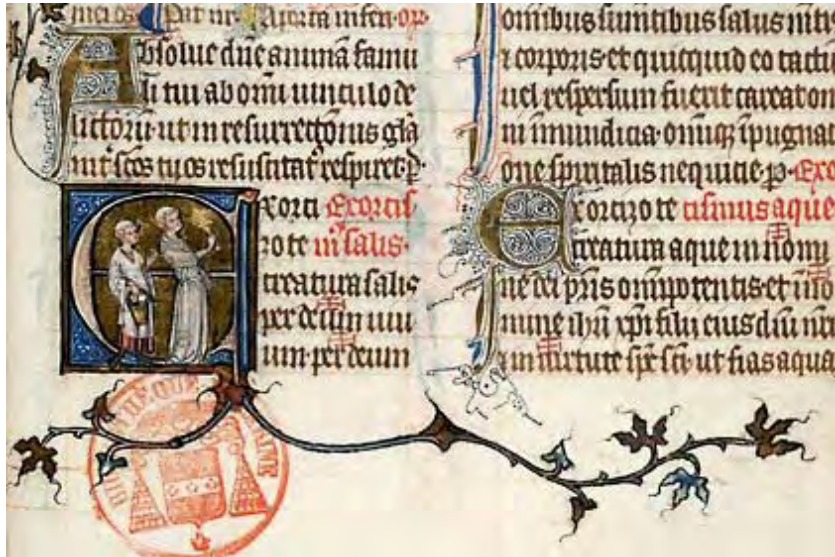 Absolue dñe animā famu
li tui ab omī uinculo de
lictorū ut in resurrectionis glā
int̾ scōs tuos resuscitat̾ respiret. p̲.
Exorci Exorcis
zo te m᷒ salis.
creatura salis
per deum uiu
um per deum
omībus sumentibus salus mētis
⁊ corporis et quicquid eo tactū
uel respersum fuerit careat om
ni īmundicia. omīq̨ īpugnati
one spiritalis nequicie. p̲. Exor
Exorcizo te cismus aque
creatura aque in nomi
ne dei pr̄is omīpotentis et in no
mine ihū xp̄i filii eius dñi nr̄i
⁊ in uirtute sp̄c sc̄i. ut fias aqua